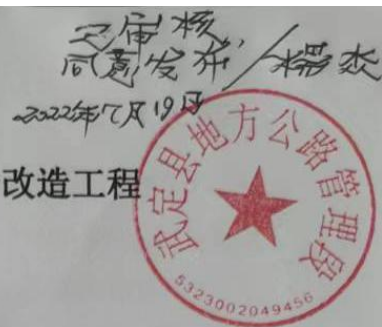 已审核,
同意发布/杨杰
2022年7月19日
改造工程
武定县地方公路管理段
5323002049456